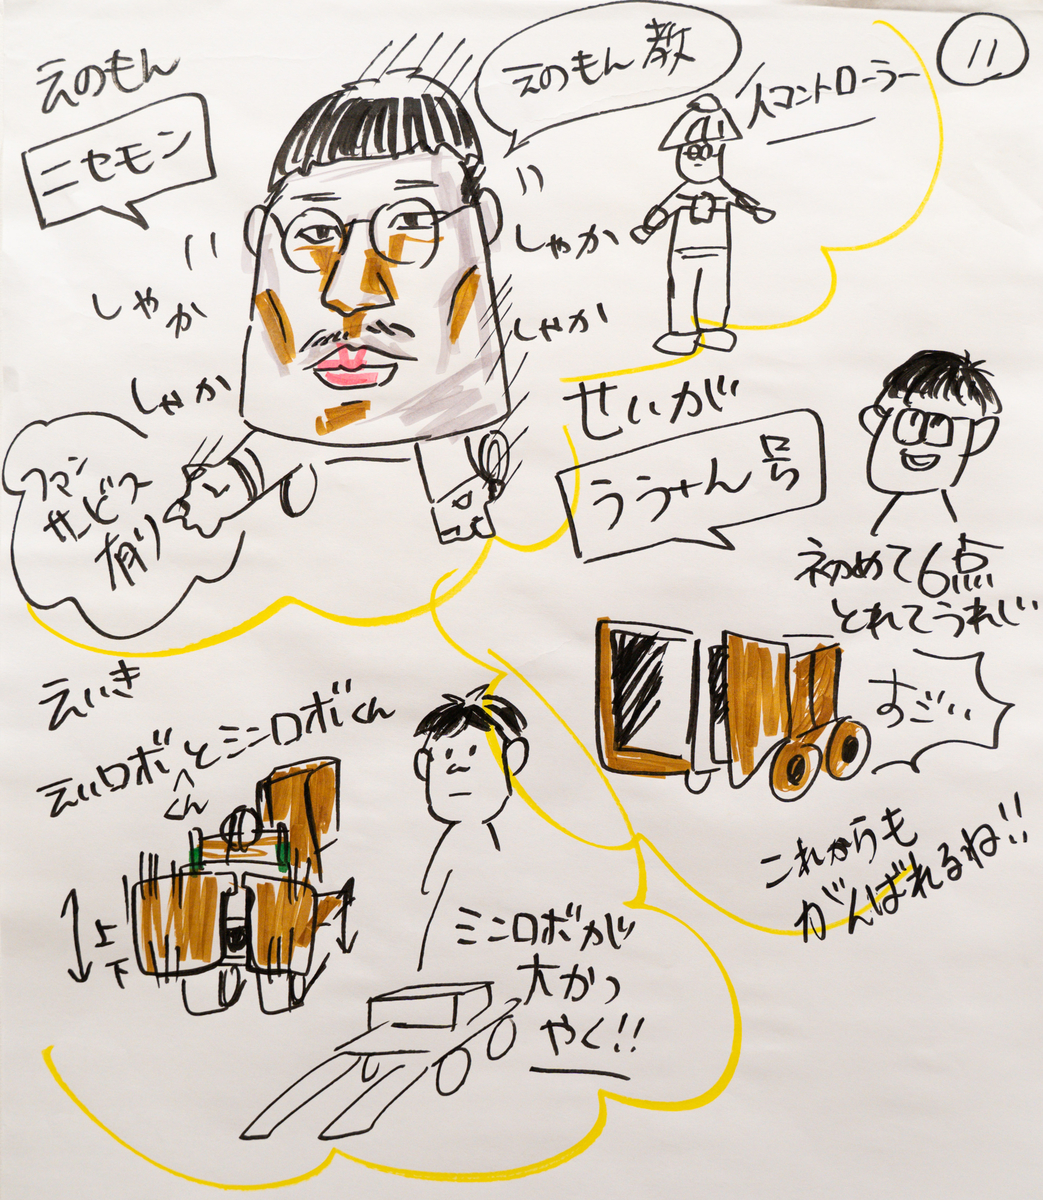 11
えのもん
ニセモン
えのもん教
人コントローラー
しゃか
しゃか
しゃか
しゃか
フマン
サービス
有り
せいが
ううゃん号
初めて6点
とれてうれしい
すごい
これからも
がんばれるね!!
えいき
えいロボくんとミニロボくん
上
下
ミニロボが
大かつ
やく!!